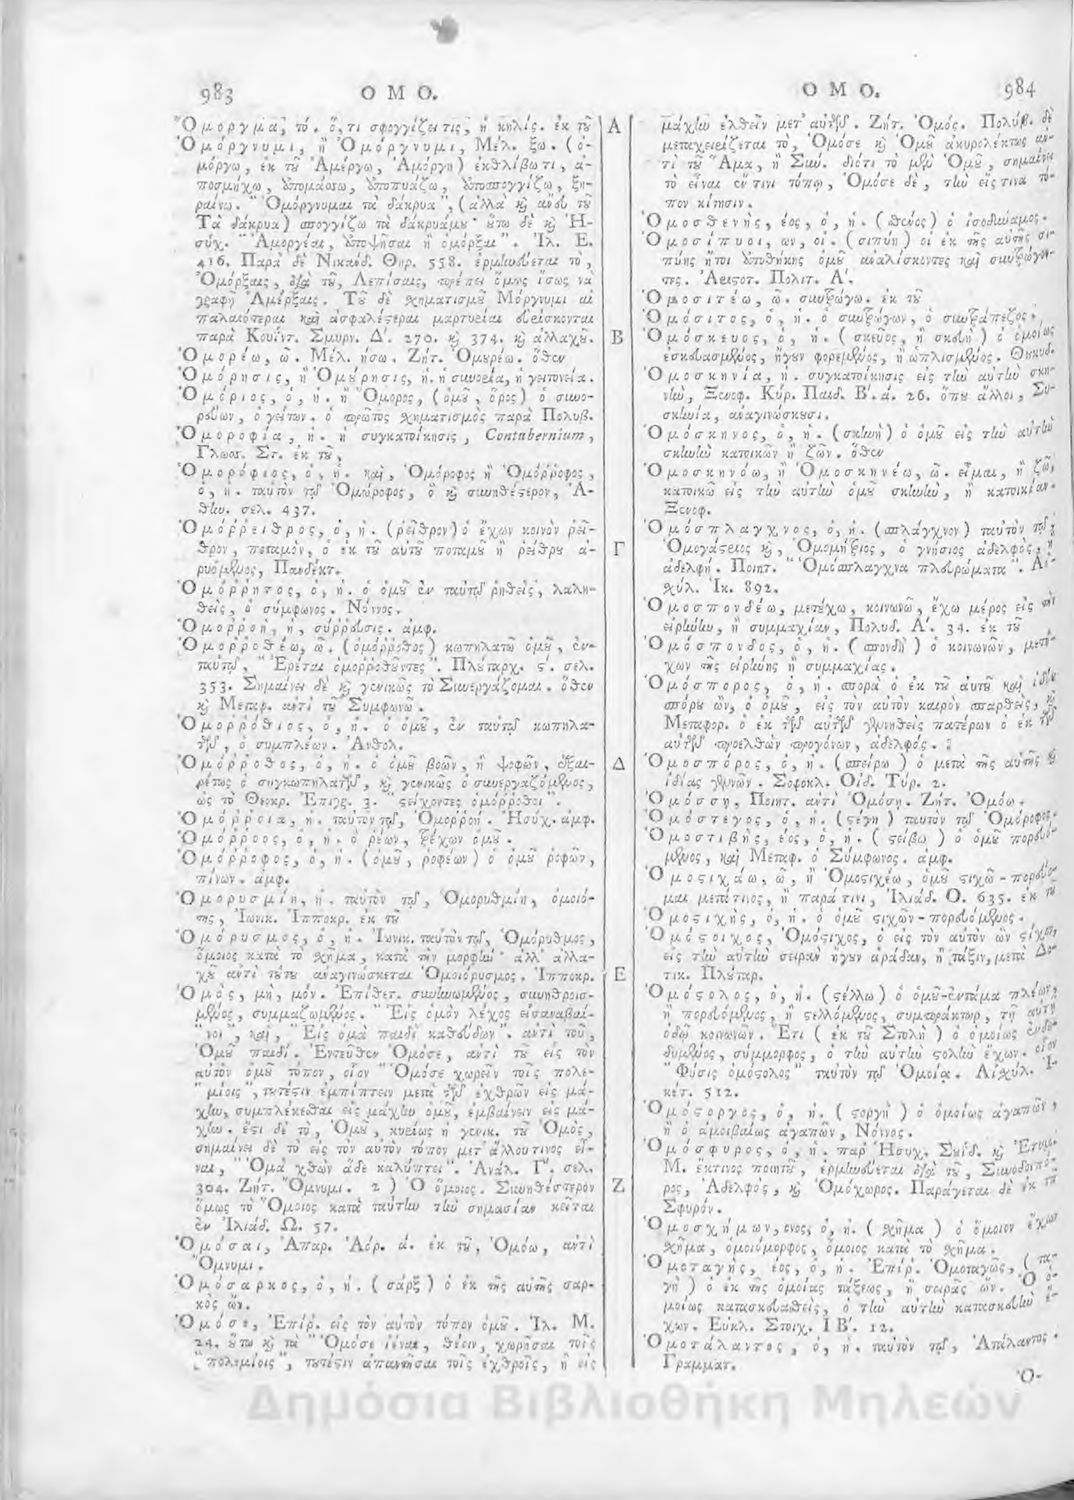 983 Ο Μ Ο.
Ὄμοργμα, τό. ὅ,τι σφογγίζει τις, ἢ κηλίς. ἐκ τοῦ
Ὀμόργνυμι, ἢ Ὀμοργνυμι, Μέλ. ξω. (ὀ-
μόργω, ἐκ τοῦ Ἀμέργω, Ἀμόργη) ἐκθλίβω τι, ἀ-
ποσμήχω, ἀπομάσσω, ἀποπυάζω, ἀποσπογγίζω, ξη-
ραίνω. "Ὀμόργνυμαι τὰ δάκρυα", (ἀλλὰ καὶ ἄνευ τοῦ
Τὰ δάκρυα) σπογγίζω τὰ δάκρυάμου· οὕτω δὲ καὶ Ἡ-
σύχ. "Ἀμοργέαι, ἀποψῆσαι ἢ ὀμόρξαι". Ἰλ. Ε.
416. Παρὰ δὲ Νικάνδ. Θηρ. 558. ἑρμηνεύεται τὸ,
Ὀμόρξαις, διὰ τοῦ, Λεπίσαις, πρέπει ὅμως ἴσως νὰ
γραφῇ Ἀμέρξαις. Τοῦ δὲ σχηματισμοῦ Μόργνυμι αἱ
παλαιότεραι καὶ ἀσφαλέστεραι μαρτυρίαι εὑρίσκονται
παρὰ Κοΐντ. Σμυρν. Δ'. 270. καὶ 374. καὶ ἀλλαχοῦ.
Ὁμορέω, ῶ. Μέλ. ήσω. Ζήτ. Ὁμουρέω. ὅθεν
Ὁμόρησις, ἢ Ὁμούρησις, ἡ. ἡ συνορεία, ἡ γειτονεία.
Ὁμόριος, ὁ, ἡ. ἢ Ὅμορος, (ὁμοῦ, ὅρος) ὁ συνο-
ρεύων, ὁ γείτων. ὁ πρῶτος σχηματισμὸς παρὰ Πολυβ.
Ὁμοροφία, ἡ. ἡ συγκατοίκησις, Contubernium,
Γλωσσ. Στ. ἐκ τοῦ,
Ὁμορόφιος, ὁ, ἡ. καὶ, Ὁμόροφος ἢ Ὁμόρροφος,
ὁ, ἡ. ταὐτὸν τῷ Ὁμώροφος, ὁ καὶ συνηθέστερον, Ἀ-
θην. σελ. 437.
Ὁμόρρειθρος, ὁ, ἡ. (ῥεῖθρον) ὁ ἔχων κοινὸν ῥεῖ-
θρον, ποταμόν, ὁ ἐκ τοῦ αὐτοῦ ποταμοῦ ἢ ῥείθρου ἀ-
ρυόμενος, Πανδέκτ.
Ὁμόρρητος, ὁ, ἡ. ὁ ὁμοῦ ἐν ταὐτῷ ῥηθεὶς, λαλη-
θεὶς, ὁ σύμφωνος. Νόννος.
Ὁμορροή, ἡ, σύρρευσις. ἀμφ.
Ὁμορροθέω, ῶ. (ὁμόρροθος) κωπηλατῶ ὁμοῦ, ἐν-
ταὐτῷ, "Ἐρέται ὁμορροθοῦντες". Πλούταρχ. ς. σελ.
353. Σημαίνει δὲ καὶ γενικῶς τὸ Συνεργάζομαι. ὅθεν
καὶ Μεταφ. ἀντὶ τοῦ Συμφωνῶ.
Ὁμορρόθιος, ὁ, ἡ. ὁ ὁμοῦ, ἐν ταὐτῷ κωπηλα-
τῶν, ὁ συμπλέων. Ἀνθολ.
Ὁμόρροθος, ὁ, ἡ. ὁ ὁμοῦ βοῶν, ἢ ψοφῶν, ἐξαι-
ρέτως ὁ συγκωπηλατῶν, καὶ γενικῶς ὁ συνεργαζόμενος,
ὡς τὸ Θεοκρ. Ἐπιγρ. 3. "στείχοντες ὁμόρροθοι".
Ὁμόρροια, ἡ. ταὐτὸν τῷ, Ὁμορροή. Ἡσύχ. ἀμφ.
Ὁμόρροος, ὁ, ἡ. ὁ ῥέων, τρέχων ὁμοῦ.
Ὁμόρροφος, ὁ, ἡ. (ὁμοῦ, ῥοφέων) ὁ ὁμοῦ ῥοφῶν,
πίνων. ἀμφ.
Ὁμορυσμίη, ἡ. ταὐτὸν τῷ, Ὁμορυθμίη, ὁμοιό-
της, Ἰωνικ. Ἱπποκρ. ἐκ τοῦ
Ὁμόρυσμος, ὁ, ἡ. Ἰωνικ. ταὐτὸν τῷ, Ὁμόρυθμος,
ὅμοιος κατὰ τὸ σχῆμα, κατὰ τὴν μορφήν· ἀλλ' ἀλλα-
χοῦ ἀντὶ τούτου ἀναγινώσκεται Ὁμοιόρυσμος. Ἱπποκρ.
Ὁμὸς, μὴ, μόν. Ἐπίθετ. συνηνωμένος, συνηθροισ-
μένος, συμμαζωμένος. "Εἰς ὁμὸν λέχος εἰσαναβαί-
νοι", καὶ, "Εἰς ὁμὰ παιδὶ καθεύδων". ἀντὶ τοῦ,
Ὁμοῦ παιδί. Ἐντεῦθεν Ὁμόσε, ἀντὶ τοῦ εἰς τὸν
αὐτὸν ὁμοῦ τόπον, οἷον "Ὁμόσε χωρεῖν τοῖς πολε-
μίοις", τουτέστιν ἐμπίπτειν μετὰ τῶν ἐχθρῶν εἰς μά-
χην, συμπλέκεσθαι εἰς μάχην ὁμοῦ, ἐμβαίνειν εἰς μά-
χην. ἔστι δὲ τὸ, Ὁμοῦ, κυρίως ἡ γενικ. τοῦ Ὁμὸς,
σημαίνει δὲ τὸ εἰς τὸν αὐτὸν τόπον μετ' ἄλλου τινος εἶ-
ναι, "Ὁμὰ χθὼν ἅδε καλύπτει". Ἀνάλ. Γ'. σελ.
304. Ζήτ. Ὄμνυμι. 2) Ὁ ὅμοιος. Συνηθέστερον
ὅμως τὸ Ὅμοιος κατὰ ταύτην τὴν σημασίαν κεῖται
ἐν Ἰλιάδ. Ω. 57.
Ὀμόσαι, Ἀπαρ. Ἀόρ. ά. ἐκ τοῦ, Ὀμόω, ἀντὶ
Ὄμνυμι.
Ὁμόσαρκος, ὁ, ἡ. (σάρξ) ὁ ἐκ τῆς αὐτῆς σαρ-
κὸς ὤν.
Ὁμόσε, Ἐπίρ. εἰς τὸν αὐτὸν τόπον ὁμοῦ. Ἰλ. Μ.
24. οὕτω καὶ τὰ "Ὁμόσε ἰέναι, θέειν, χωρῆσαι τοῖς
πολεμίοις", τουτέστιν ἀπαντῆσαι τοῖς ἐχθροῖς, ἢ εἰς
Α
Β
Γ
Δ
Ε
Ζ
Ο Μ Ο. 984
μάχην ἐλθεῖν μετ' αὐτῶν. Ζήτ. Ὁμός. Πολύβ. δὲ
μεταχειρίζεται τὸ, Ὁμόσε καὶ Ὁμοῦ ἀκυρολέκτως ἀν-
τὶ τοῦ Ἅμα, ἢ Σύν. διότι τὸ μὲν Ὁμοῦ, σημαίνει
τὸ εἶναι ἔν τινι τόπῳ, Ὁμόσε δὲ, τὴν εἴς τινα τό-
πον κίνησιν.
Ὁμοσθενὴς, έος, ὁ, ἡ. (σθένος) ὁ ἰσοδύναμος.
Ὁμοσίπυοι, ων, οἱ. (σιπύη) οἱ ἐκ τῆς αὐτῆς σι-
πύης ἤτοι ἀποθήκης ὁμοῦ ἀναλίσκοντες καὶ συντρώγον-
τες. Ἀριστοτ. Πολιτ. Α'.
Ὁμοσιτέω, ῶ. συντρώγω. ἐκ τοῦ
Ὁμόσιτος, ὁ, ἡ. ὁ συντρώγων, ὁ συντράπεζος.
Ὁμόσκευος, ὁ, ἡ. (σκεῦος, ἢ σκευὴ) ὁ ὁμοίως
ἐσκευασμένος, ἤγουν φορεμένος, ἢ ὡπλισμένος. Θουκυδ.
Ὁμοσκηνία, ἡ. συγκατοίκησις εἰς τὴν αὐτὴν σκη-
νὴν, Ξενοφ. Κύρ. Παιδ. Β'. ά. 26. ὅπου ἄλλοι, Συ-
σκηνία, ἀναγινώσκουσι.
Ὁμόσκηνος, ὁ, ἡ. (σκηνὴ) ὁ ὁμοῦ εἰς τὴν αὐτὴν
σκηνὴν κατοικῶν ἢ ζῶν. ὅθεν
Ὁμοσκηνόω, ἢ Ὁμοσκηνέω, ῶ. εἶμαι, ἢ ζῶ,
κατοικῶ εἰς τὴν αὐτὴν ὁμοῦ σκηνὴν, ἢ κατοικίαν.
Ξενοφ.
Ὁμόσπλαγχνος, ὁ, ἡ. (σπλάγχνον) ταὐτὸν τῷ
Ὁμογάστριος καὶ, Ὁμομήτριος, ὁ γνήσιος ἀδελφὸς, ἢ
ἀδελφή. Ποιητ. "Ὁμόσπλαγχνα πλευρώματα". Αἰ-
σχύλ. Ἱκ. 892.
Ὁμοσπονδέω, μετέχω, κοινωνῶ, ἔχω μέρος εἰς τὴν
εἰρήνην, ἢ συμμαχίαν, Πολυδ. Α'. 34. ἐκ τοῦ
Ὁμόσπονδος, ὁ, ἡ. (σπονδὴ) ὁ κοινωνῶν, μετέ-
χων τῆς εἰρήνης ἢ συμμαχίας.
Ὁμόσπορος, ὁ, ἡ. σπορὰ ὁ ἐκ τοῦ αὐτοῦ καὶ ἰδίου
σπόρου ὢν, ὁ ὁμοῦ, εἰς τὸν αὐτὸν καιρὸν σπαρθεὶς, καὶ
Μεταφορ. ὁ ἐκ τῶν αὐτῶν γεννηθεὶς πατέρων ὁ ἐκ τῶν
αὐτῶν προελθὼν προγόνων, ἀδελφός.
Ὁμοσπόρος, ὁ, ἡ. (σπείρω) ὁ μετὰ τῆς αὐτῆς καὶ
ἰδίας γεννῶν. Σοφοκλ. Οἰδ. Τύρ. 2.
Ὀμόσση, Ποιητ. ἀντὶ Ὀμόσῃ. Ζήτ. Ὀμόω.
Ὁμόστεγος, ὁ, ἡ. (στέγη) ταὐτὸν τῷ Ὁμόροφος.
Ὁμοστιβὴς, έος, ὁ, ἡ. (στείβω) ὁ ὁμοῦ πορευό-
μενος, καὶ Μεταφ. ὁ Σύμφωνος. ἀμφ.
Ὁμοστιχάω, ῶ, ἢ Ὁμοστιχέω, ὁμοῦ στιχῶ-πορεύο-
μαι μετάτινος, ἢ παρά τινι, Ἰλιάδ. Ο. 635. ἐκ τοῦ
Ὁμοστιχὴς, ὁ, ἡ. ὁ ὁμοῦ στιχῶν-πορευόμενος.
Ὁμόστοιχος, Ὁμόστιχος, ὁ εἰς τὸν αὐτὸν ὢν στίχον,
εἰς τὴν αὐτὴν σειρὰν ἤγουν ἀράδαν, ἢ τάξιν, μετὰ Δο-
τικ. Πλούταρ.
Ὁμόστολος, ὁ, ἡ. (στέλλω) ὁ ὁμοῦ-ἐντάμα πλέων,
ἢ πορευόμενος, ἢ στελλόμενος, συμπράκτωρ, τῇ αὐτῇ
ὁδῷ κοινωνῶν. Ἔτι (ἐκ τοῦ Στολὴ) ὁ ὁμοίως ἐνδε-
δυμένος, σύμμορφος, ὁ τὴν αὐτὴν στολὴν ἔχων. οἷον
"Φύσις ὁμόστολος" ταὐτὸν τῷ Ὁμοία. Αἰσχύλ. Ἱ-
κέτ. 512.
Ὁμόστοργος, ὁ, ἡ. (στοργὴ) ὁ ὁμοίως ἀγαπῶν,
ἢ ὁ ἀμοιβαίως ἀγαπῶν, Νόννος.
Ὁμόσφυρος, ὁ, ἡ. παρ' Ἡσυχ. Σουΐδ. καὶ Ἐτυμ.
Μ. ἔκτινος ποιητοῦ, ἑρμηνεύεται διὰ τοῦ, Σύνοδοιπό-
ρος, Ἀδελφὸς, καὶ Ὁμόχωρος. Παράγεται δὲ ἐκ τοῦ
Σφυρόν.
Ὁμοσχήμων, ονος, ὁ, ἡ. (σχῆμα) ὁ ὅμοιον ἔχων
σχῆμα, ὁμοιόμορφος, ὅμοιος κατὰ τὸ σχῆμα.
Ὁμοταγὴς, έος, ὁ, ἡ. Ἐπίρ. Ὁμοταγῶς, (τα-
γὴ) ὁ ἐκ τῆς ὁμοίας τάξεως, ἢ σειρᾶς ὤν. Ὁ ὁ-
μοίως κατασκευασθεὶς, ὁ τὴν αὐτὴν κατασκευὴν ἔ-
χων. Εὐκλ. Στοιχ. ΙΒ'. 12.
Ὁμοτάλαντος, ὁ, ἡ. ταὐτὸν τῷ, Ἀτάλαντος.
Γραμματ.
Ὁ-
Δημόσια Βιβλιοθήκη Μηλεών